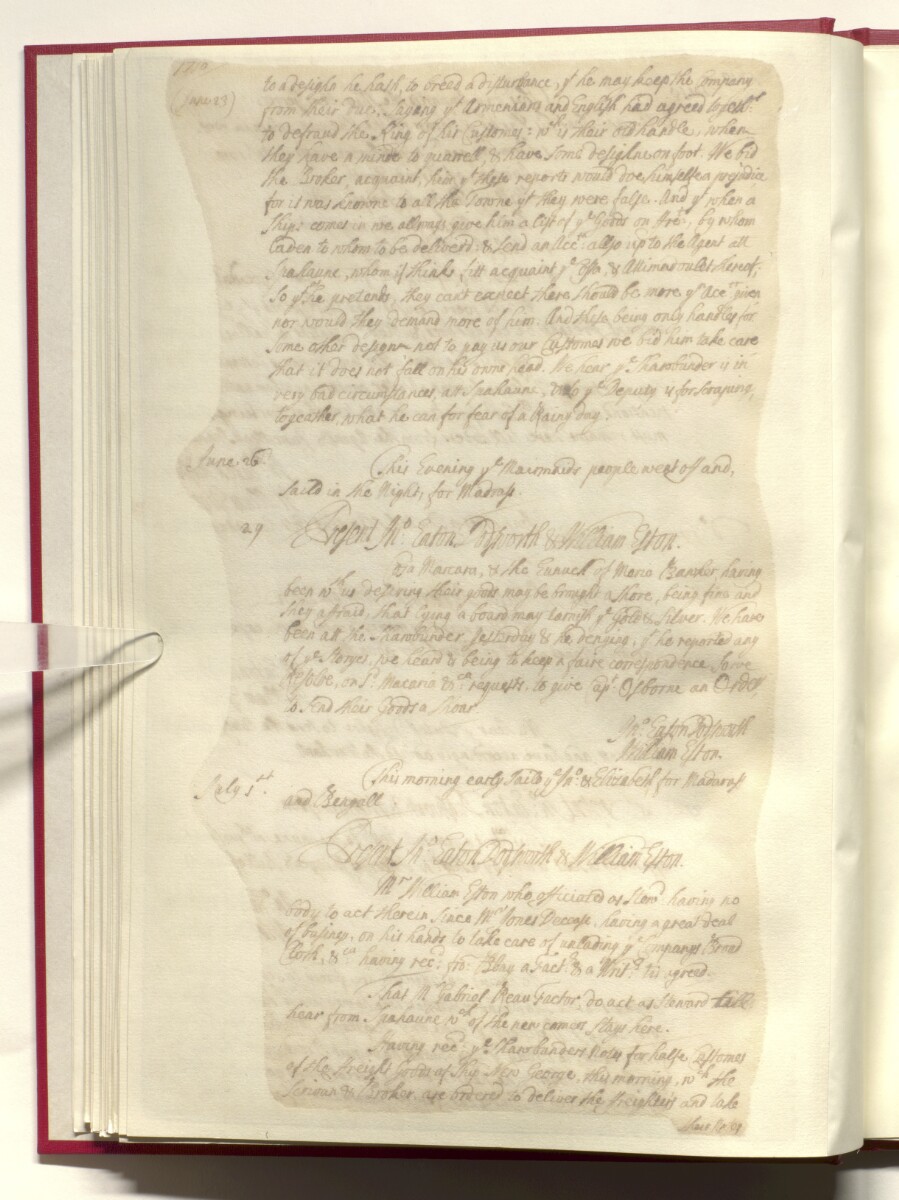 1710
June 23
to a designe he hath, to breed a disturbance, yt he may keep the Company
from their due, Saying yt Armenians and English had agreed togethr
to defraud the King of his Customes: wch is their old handle, when
they have a minde to quarrell, & have some designe on foot. We bid
the Broker, acquaint, him yt these reports would doe himselfe a prejudice
for it was knowne to all the Towne yt they were false. And yt when a
Ship comes in we allways give him a list of ye Goods on Frt, by whom
laden to whom to be deliverd: & send an Acct: allso up to the Agent att
Spahaune, whom if thinks fitt acquaint ye & Attimandoulet thereof;
So yt he pretends, they cant expect there should be more yn Acct given
nor would they demand more of him. And these being only handles for
some other designe not to pay us our Customes we bid him take care
that it does not fall on his owne head. We hear ye Shawbunder is in
very bad circumstances, att Spahaune, ye Deputy is for scraping,
togeather, what he can for fear of a Rainy day.
June 26
This Evening ye people went off and,
saild in the Night, for Madrass.
29
Present Jno Eaton Dodsworth & William Eston.
Marcara, & the Eunuch of having
been wth us desireing their goods may be brought a shore, being fine and
they affraid, that lying a board may tarnish ye Gold & Silver. We have
been att the Shawbunder, yesterday & he denying, yt he reported any
of ye Storyes, we heard & being to keep a faire correspondence,
Resolve, on & ca requests, to give Capt: Osborne an Order
to send their Goods a shoar.
Jno: Eaton Dodsworth
William Eston.
July 1st
This morning early saild ye Jno: & Elizabeth for Madarass
and Bengall
Present Jno Eaton Dodsworth & William Eston.
Mr William Eston who officiated as Stewd: having no
body to act therein since Mr Jones Decease, having a great deal
of business, on his hands to take care of unlading ye Companys Broad
Cloth, &ca: having recd: fro: Bbay a Factr: & a Writr tis agreed.
That Mr Gabriel Beau Factor, do act as Steward till
hear from Spahaune wch of the new comers stays here.
Having recd: ye Shawbunders Note for halfe Customes
of the Freight Goods of Ship New George, this morning, wth the
& Broker are ordered to deliver the Freighters and take